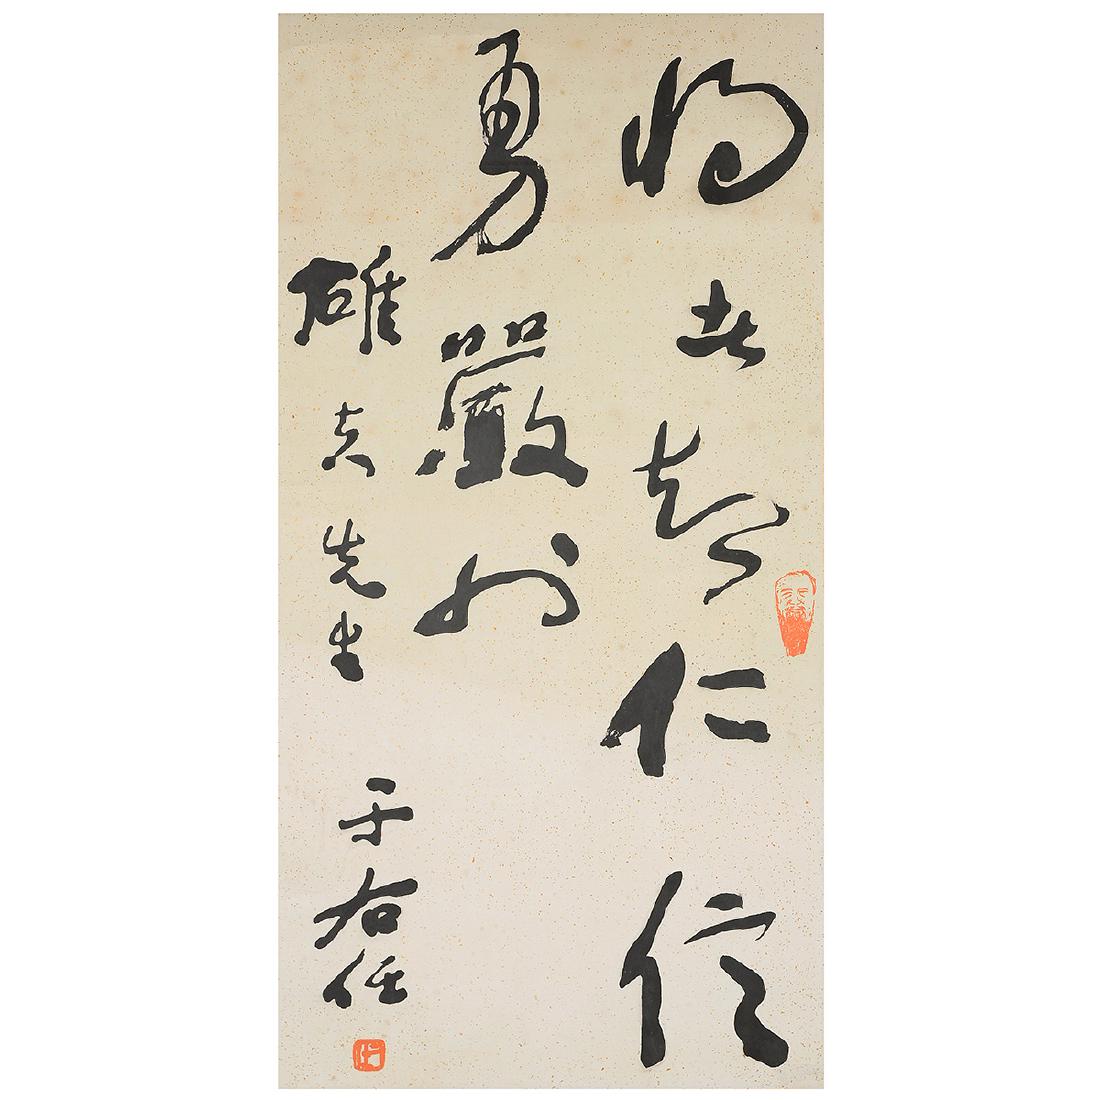 將者智仁信
勇嚴也
雄夫先生 于右任